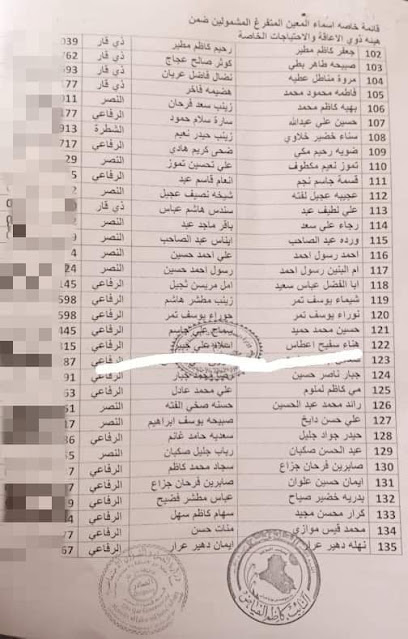 قائمة خاصه اسماء المعين المتفرغ المشمولين ضمن
هيئه ذوي الاعاقة والاحتياجات الخاصة
102 جعفر كاظم مطير رحيم كاظم مطير ذي قار 039
103 صبيحه طاهر بطي كوثر صالح عجاج ذي قار 762
104 مروة مناطل عطيه نضال فاضل عريان ذي قار 693
105 فاطمه محمود محمد هضيمه فاخر ذي قار 177
106 بهيه كاظم محمد زينب سعد فرحان النصر 011
107 حسين علي عبدالله سارة سلام حمود الرفاعي 177
108 سناء خضير خلاوي زينب حيدر نعيم الشطرة 913
109 ضويه رحيم مكي ضحى كريم هادي الرفاعي 717
110 تموز نعيم مكطوف علي تحسين تموز النصر 29
111 قسمة جاسم نجم انعام قاسم عبد الرفاعي 5
112 عجيبه عجيل لفته شيخه نصيف عجيل النصر
113 علي لطيف عبد سندس هاشم عباس ذي قار
114 رجاء علي سعد باقر ماجد عبد النصر
115 ورده عبد الصاحب ايناس عبد الصاحب النصر 9
116 احمد رسول احمد علي احمد حسين النصر 4
117 ام البنين رسول احمد رسول احمد حسين النصر 24
118 ابا الفضل عباس سعيد امل مريسن ثجيل الرفاعي 145
119 شيماء يوسف تمر زينب مطشر هاشم الرفاعي 598
120 نوراء يوسف تمر حوراء يوسف تمر الرفاعي 598
121 حسين محمد حميد سماح علي جاسم الرفاعي 445
122 هناء سفيح اعطاس علي الرفاعي 315
123 الرفاعي 87
124 جبار ناصر حسين محمد جبار الرفاعي 91
125 مي كاظم لملوم علي محمد عادل الرفاعي 63
126 رائد محمد عبد الحسين حسنه صخي الفته النصر 61
127 علي حسن دايخ صبيحه يوسف ابراهيم النصر
128 حيدر جواد جليل سعديه حامد غانم الرفاعي 86
129 عبد الحسن صكبان رباب جليل صكبان النصر
130 صابرين فرحان جزاع سجاد محمد كاظم الرفاعي
131 ايمان حسين علوان صابرين فرحان جزاع الرفاعي
132 بدريه خضير صباح عباس مطشر فضيح الرفاعي
133 كرار محسن مجيد سهام كاظم سهل الرفاعي
134 محمد قيس موازي منات حسن الرفاعي
135 نهله دهير عرار ايمان دهير عرار الرفاعي 67